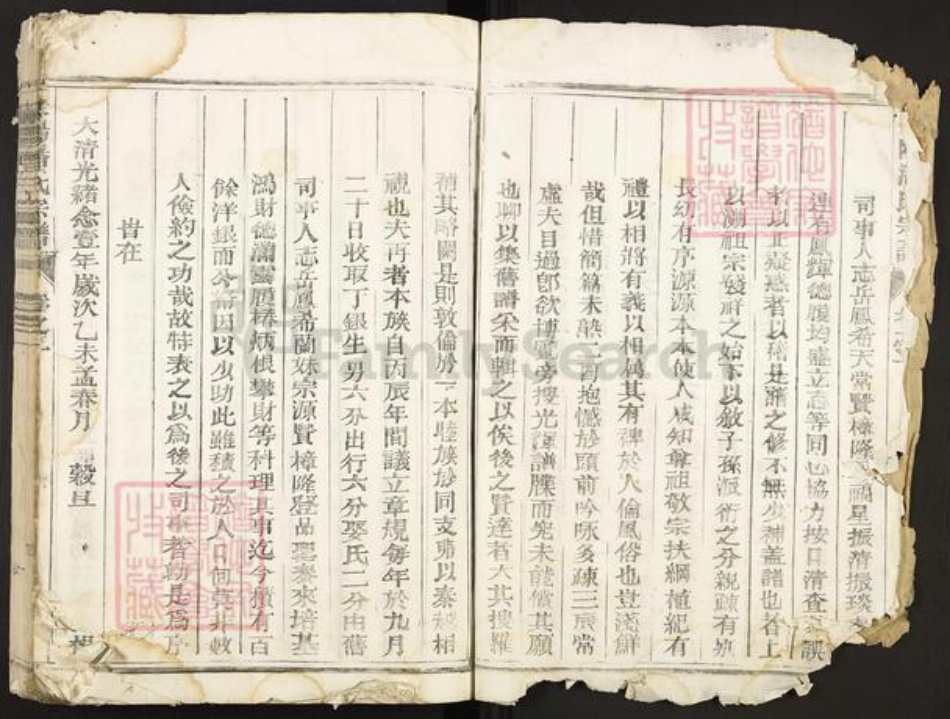 司事人志岳鳳希天常賢樟隆福星振清振琰
連石鳳輝德履均盛立志等同心協力按日清查誤
者以正疑惑者以補是譜之修不無少補蓋譜也者上
以溯祖宗發祥之始下以敘子孫派衍之分親疎有別
長幼有序源源本本使人咸知尊祖敬宗扶綱植紀有
禮以相將有義以相維其有裨於人倫風俗也豈淺鮮
哉但惜簡篇未熟二酉抱憾於頭前吟咏多疎三辰常
虛夫目過卽欲博覽旁搜光譜牒而究未能償其願
也聊以集舊譜采而輯之以俟後之賢達者大其搜羅
補其略闕是則敦倫於一本睦族於同支弗以秦越相
視也夫再者本族自丙辰年間議立章規每年於九月
二十日收取丁銀生男六分出行六分娶氏二分由舊
司事人志岳鳳希蘭妹宗源賢樟隆登品聖泰來培基
鴻財德滿靈履椿炳根攀財等科理其事迄今積有百
餘洋銀而今譜因以少助此雖積之於人口何莫非數
人儉約之功哉故特表之以爲後之司事者勖是爲序
旹在
大清光緒念壹年歲次乙未孟春月 穀旦
宗譜